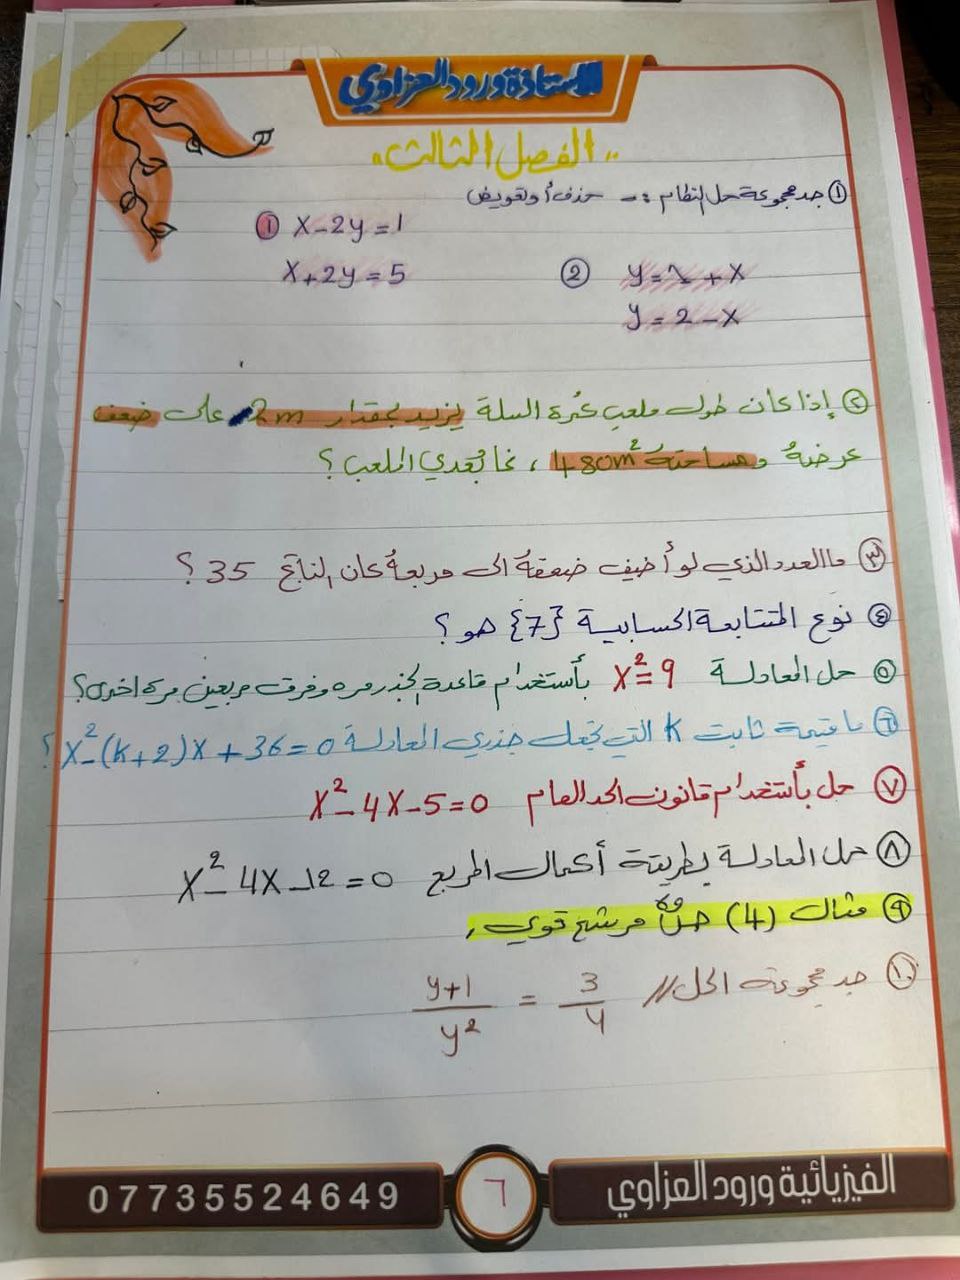 الاستاذة ورود العزاوي
الفصل الثالث
① جد مجموعة حل النظام :- حذف أو تعويض
① x-2y=1
x+2y=5
② y= + x
y=2-x
② إذا كان طول ملعب كرة السلة يزيد بمقدار 2m على ضعف
عرضهُ ومساحتهُ 480m²، فما بُعدي الملعب؟
③ ما العدد الذي لو أضيف ضعفهُ الى مربعهُ كان الناتج 35؟
④ نوع المتتابعة الحسابية {7} هو؟
⑤ حل المعادلة x²=9 بأستخدام قاعدة الجذر مره وفرق مربعين مرة اخرى؟
⑥ ما قيمة ثابت k التي تجعل جذري المعادلة x²-(k+2)x+36=0؟
⑦ حل بأستخدام قانون الحد العام x²-4x-5=0
⑧ حل المعادلة بطريقة أكمال المربع x²-4x-12=0
⑨ مثال (4) مرشح قوي
⑩ جد مجموعة الحل // y+1/y² = 3/4
07735524649
٦
الفيزيائية ورود العزاوي